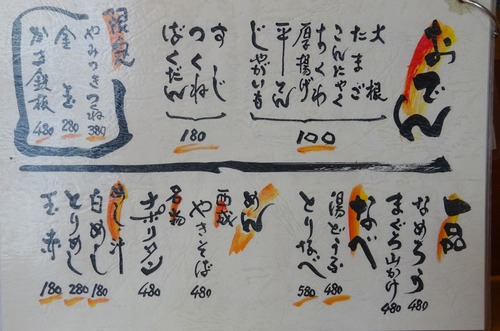 おでん
大根
たまご
こんにゃく
ちくわ
厚揚げ
平てん
じゃがいも
100
すじ
つくね
ばくだん
180
限定
やみつきつくね 380
金玉 280
鉄板 480
一品
なめろう 480
まぐろ山かけ 480
なべ
湯どうふ 480
とりなべ 580
めん
西成
やきそば 480
名物
ナポリタン 480
めし汁
白めし 180
とりめし 280
180